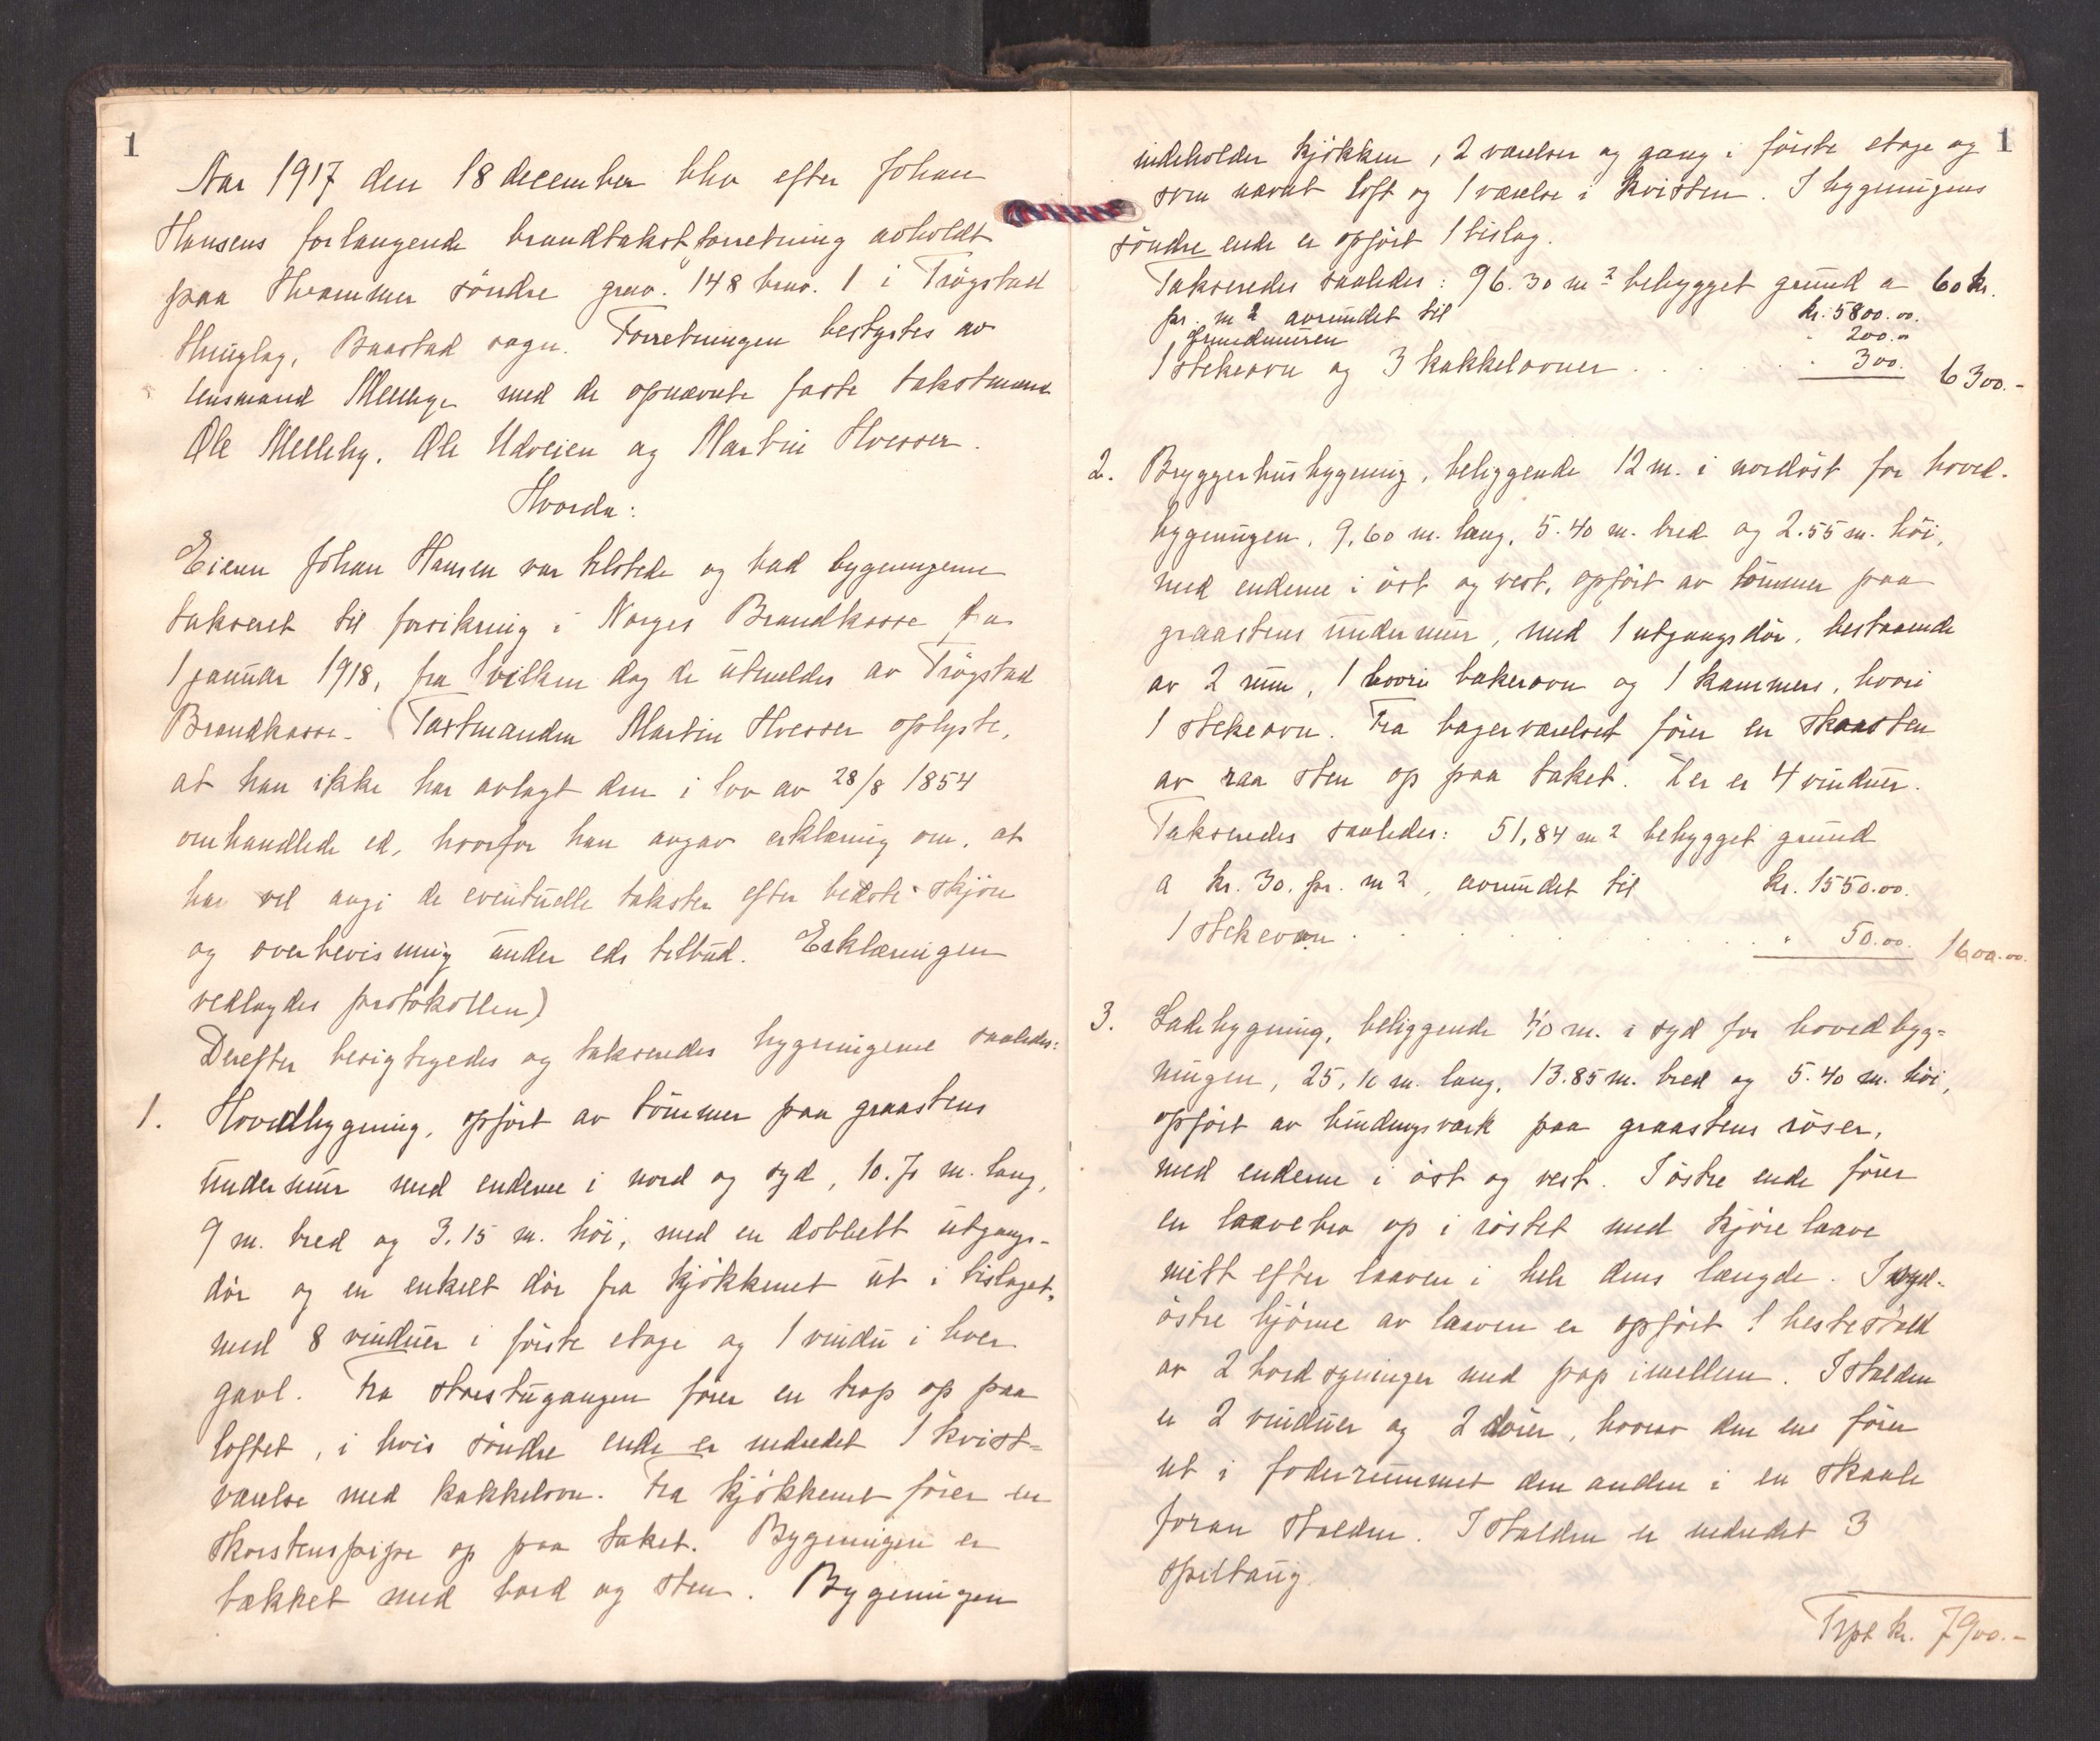 1
Aar 1917 den 18 december blev efter Johan
Hansens forlangende brandtakstforretning avholdt
paa Hvammer söndre grno. 148 brno. 1 i Trögstad
thinglag, Baastad sogn. Forretningen bestyrtes av
lensmand Mellbye med de opnævnte faste takstmænd
Ole Melleby, Ole Udveien og Martin Hvesser.
Hvorda:
Eieren Johan Hansen var tilstede og bad bygningerne
takseret til forsikring i Norges Brandkasse fra
1 januar 1918, fra hvilken dag de utmeldes av Trögstad
Brandkasse. (Taxtmanden Martin Hvesser oplyste,
at han ikke har avlagt den i lov av 28/8 1854
omhandlede ed, hvorfor han avgav erklæring om, at
han vil avgi de eventuelle takster efter bedste skjön
og overbevisning under eds tilbud. Erklæringen
vedlagdes protokollen)
Derefter besigtigedes og takseredes bygningerne saaledes:
1. Hovedbygning, opfört av tömmer paa graastens
undermur med enderne i nord og syd, 10.70 m. lang,
9 m. bred og 3.15 m. höi, med en dobbelt utgangs-
dör og en enkelt dör fra kjökkenet ut i bislaget,
med 8 vinduer i förste etage og 1 vindu i hver
gavl. Fra storstugangen förer en trap op paa
loftet, i hvis söndre ende er indredet 1 kvist-
værelse med kakkelovn. Fra kjökkenet förer en
skorstenspipe op paa taket. Bygningen er
tækket med bord og sten. Bygningen
1
indeholder kjökken, 2 værelser og gang i förste etage og
som nævnt loft og 1 værelse i kvisten. I bygningens
söndre ende er opfört 1 bislag.
Takseredes saaledes: 96.30 m2 bebygget grund a 60 kr.
pr. m2 avrundet til kr. 5800.00.
Grundmuren " 200.00
1 stekeovn og 3 kakkelovner . . . . . " 300. 6300.-
2. Bryggerhusbygning, beliggende 12 m. i nordöst for hoved-
bygningen, 9,60 m. lang, 5.40 m. bred og 2.55 m. höi,
med enderne i öst og vest, opfört av tömmer paa
graastens undermur, med 1 utgangsdör, bestaaende
av 2 rum, 1 hvori bakerovn og 1 kammers, hvori
1 stekeovn. Fra bagerværelset förer en skorsten
av raa sten op paa taket. Der er 4 vinduer.
Takseredes saaledes: 51,84 m2 bebygget grund
a kr. 30. pr. m2, avrundet til kr. 1550.00.
1 stekeovn . . . . . . . " 50.00. 1600.00.
3. Ladebygning, beliggende 40 m. i syd for hovedbyg=
ningen, 25,10 m. lang, 13.85 m. bred og 5.40 m. höi,
opfört av bindingsværk paa graastens röser,
med enderne i öst og vest. I östre ende förer
en laavebro op i röstet med kjörelaave
mitt efter laaven i hele dens længde. I syd-
östre hjörne av laaven er opfört 1 hestestald
av 2 bordsyninger med pap imellem. I stalden
er 2 vinduer og 2 dörer, hvorav den ene förer
ut i foderrummet den anden i en skaale
foran stalden. I stalden er indredet 3
spiltaug.
Trpt kr. 7900.-